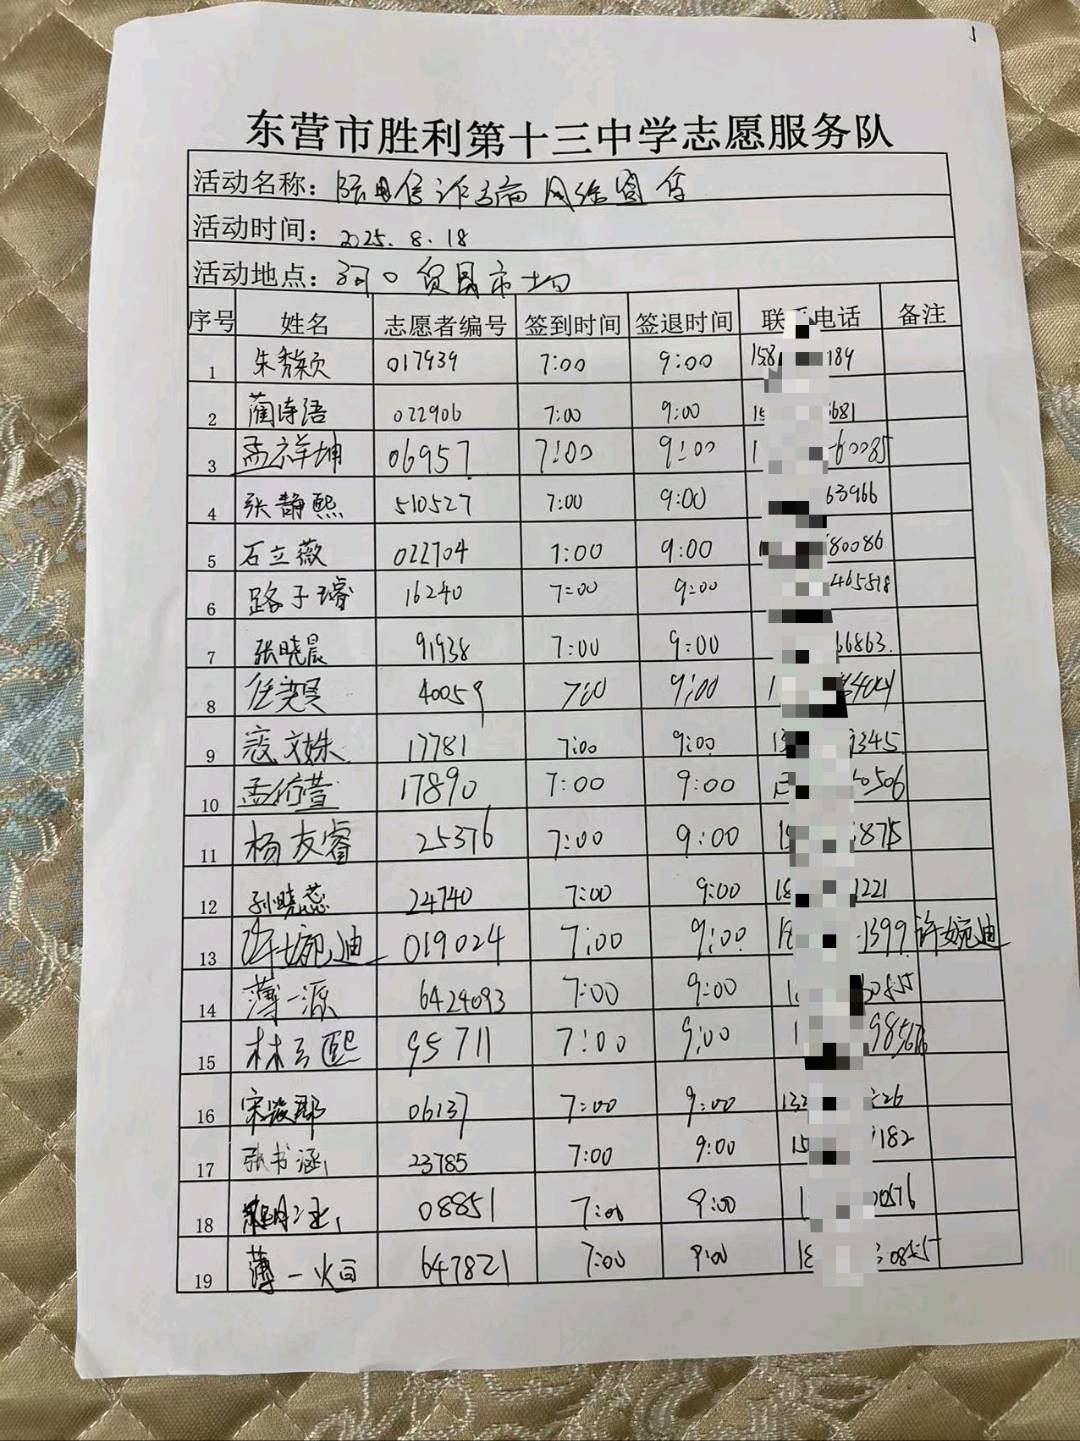 东营市胜利第十三中学志愿服务队
活动名称：防电信诈骗 网络宣传
活动时间：2025.8.18
活动地点：河口贸易市场
序号 姓名 志愿者编号 签到时间 签退时间 联系电话 备注
1 朱秀颖 017939 7:00 9:00 158 189
2 蔺诗语 022906 7:00 9:00 15 681
3 孟祥坤 06957 7:00 9:00 1 60085
4 张静熙 510527 7:00 9:00 63966
5 石立薇 022704 7:00 9:00 80086
6 路子璿 16240 7:00 9:00 465518
7 张晓晨 91938 7:00 9:00 66863
8 任 40059 7:00 9:00 1
9 寇文姝 17781 7:00 9:00 13 9345
10 孟 萱 17890 7:00 9:00 0506
11 杨友睿 25376 7:00 9:00 15 8715
12 孙晓蕊 24740 7:00 9:00 18 1221
13 许婉迪 019024 7:00 9:00 1399 许婉迪
14 薄一源 6424093 7:00 9:00 1 0855
15 林 熙 95711 7:00 9:00 1 98567
16 宋 06137 7:00 9:00 132 26
17 张书涵 23785 7:00 9:00 15 182
18 08851 7:00 9:00 1 0576
19 薄一 647821 7:00 9:00 0855